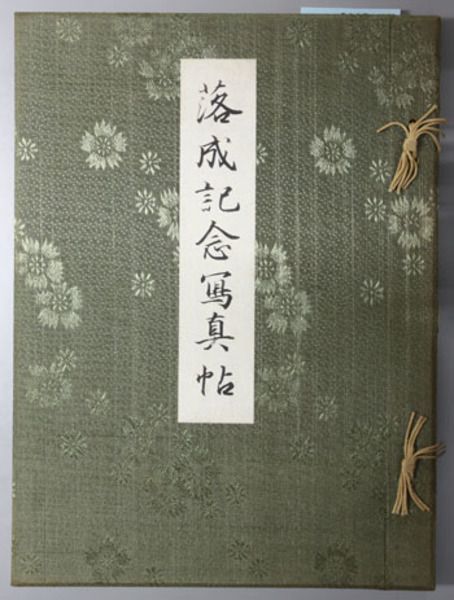 落成記念寫真帖